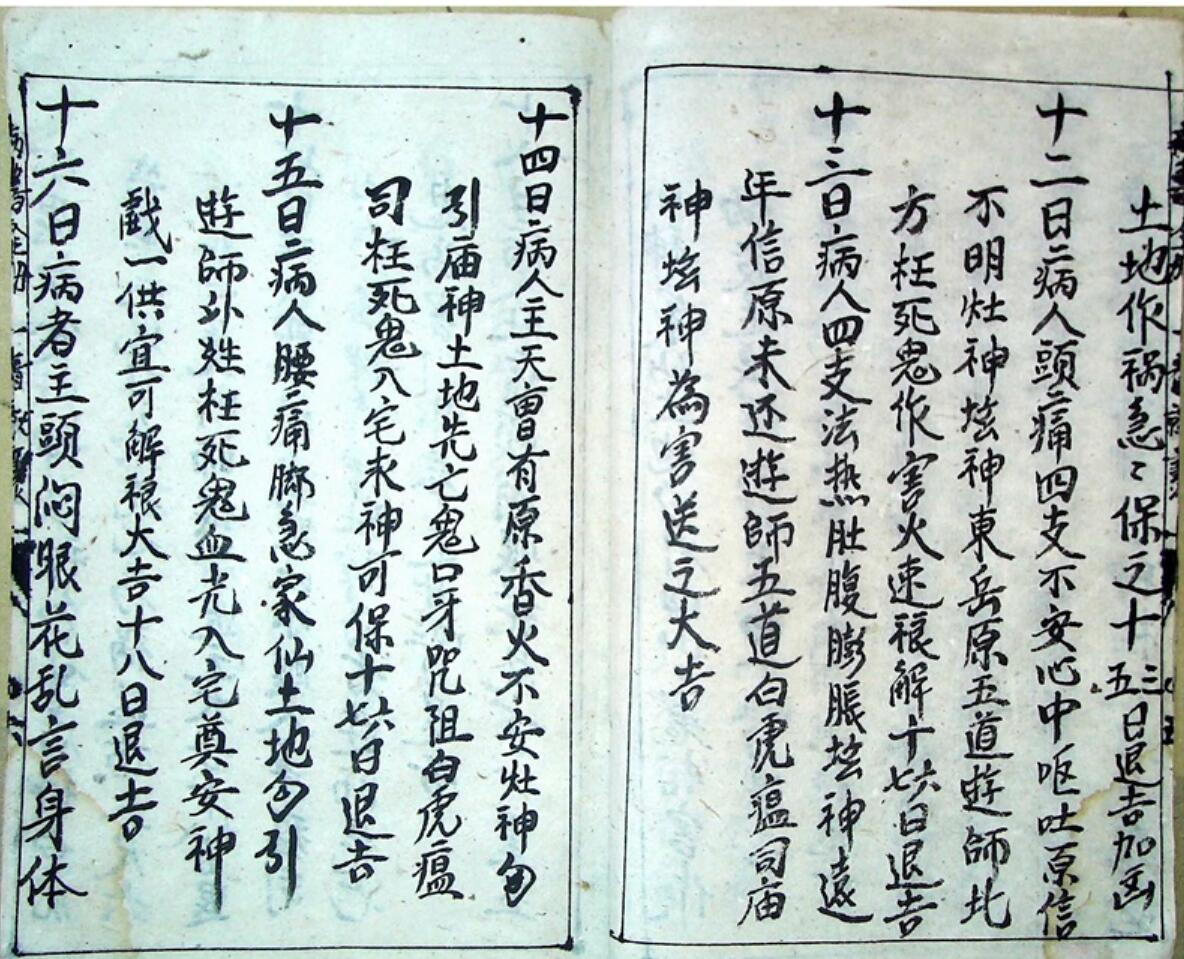 土地作祸急〻保之十三五日退吉加凶
十二日二病人頭痛四支不安心中呕吐原信
不明灶神坛神東岳原五道遊師北
方枉死鬼作害火速禳解十六七日退吉
十三日病人四支法热肚腹膨脹坛神遠
年信原未还遊師五道白虎瘟司庙
神坛神為害送之大吉
十四日病人主天曹有原香火不安灶神勾
引庙神土地先亡鬼口牙咒阻白虎瘟
司枉死鬼入宅求神可保十六七日退吉
十五日病人腰痛脚急家仙土地勾引
遊師外姓枉死鬼血光入宅奠安神
戲一供宜可解禳大吉十八日退吉
十六日病者主頭闷眼花乱言身体